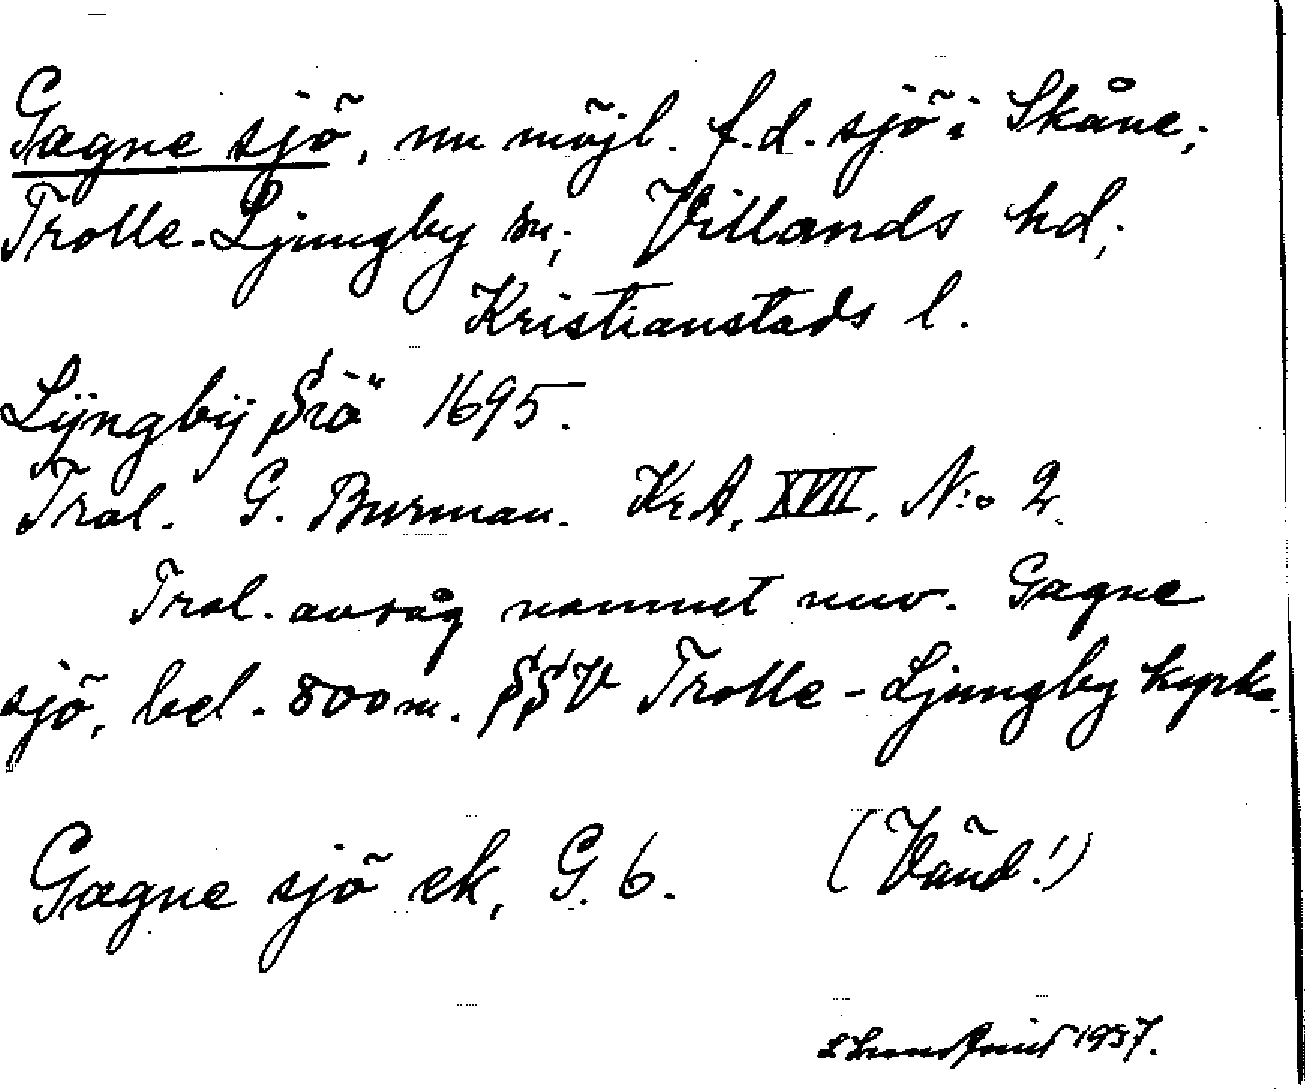 Gagne sjö, nu möjl. f.d. sjö i Skåne;
Trolle-Ljungby sn; Villands hd;
Kristianstads l.
Lÿngbÿ Siö 1695.
Trol. G. Burman. KrA, XVII, N:o 2.
Trol. avsåg namnet nuv. Gagne
sjö, bel. 800 m. SSV Trolle-Ljungby kyrka.
Gagne sjö ek, G. 6. (Vänd!)
1937.